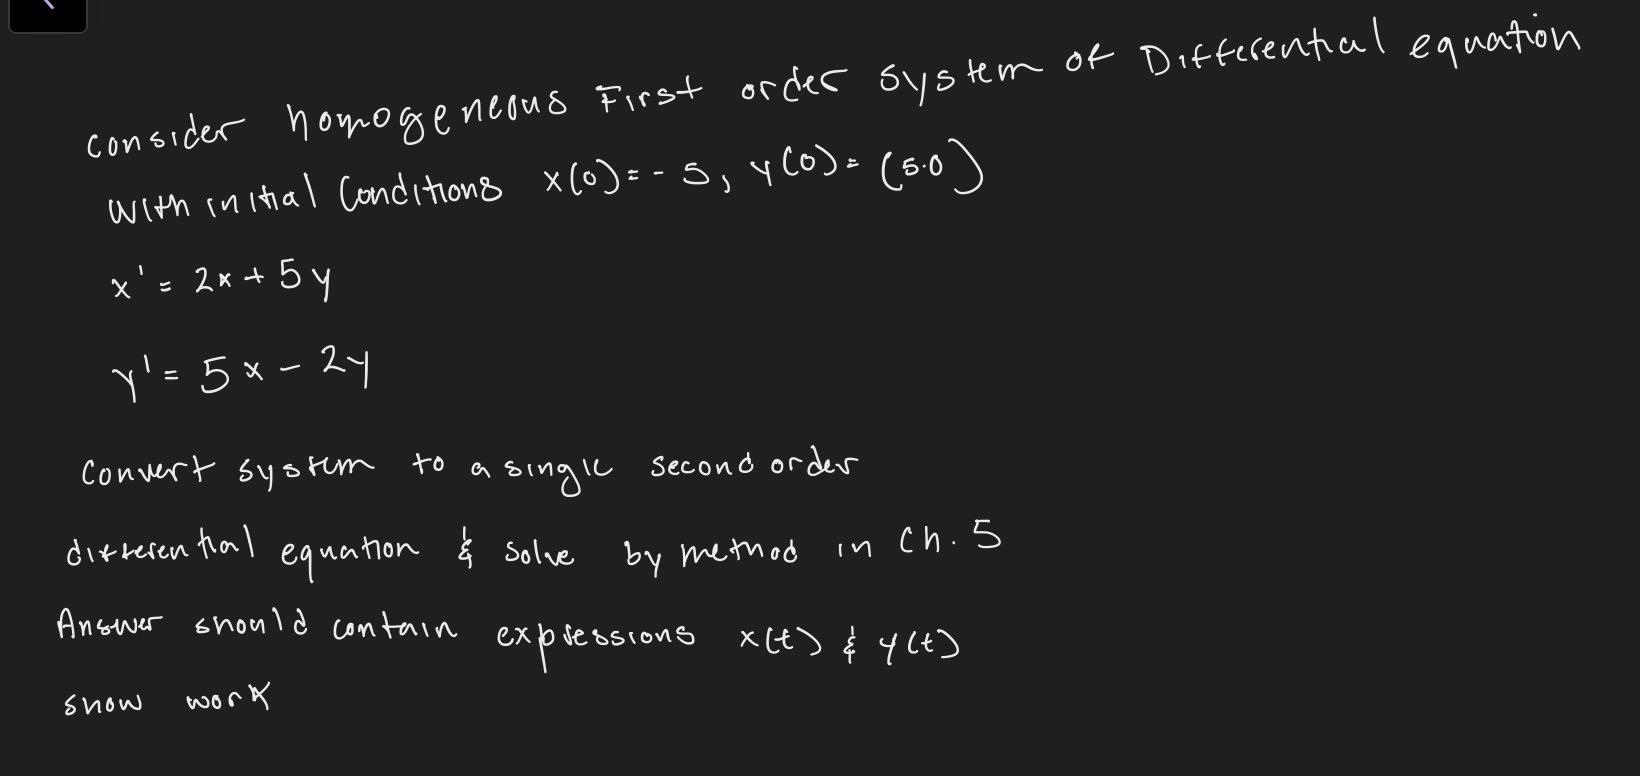 consider homogeneous First order system of Differential equation
With initial Conditions x(0)=-5, y(0)= (5.0)
x' = 2x + 5y
y' = 5x - 2y
Convert system to a single second order
differential equation & solve by method in Ch. 5
Answer should contain expressions x(t) & y(t)
show work